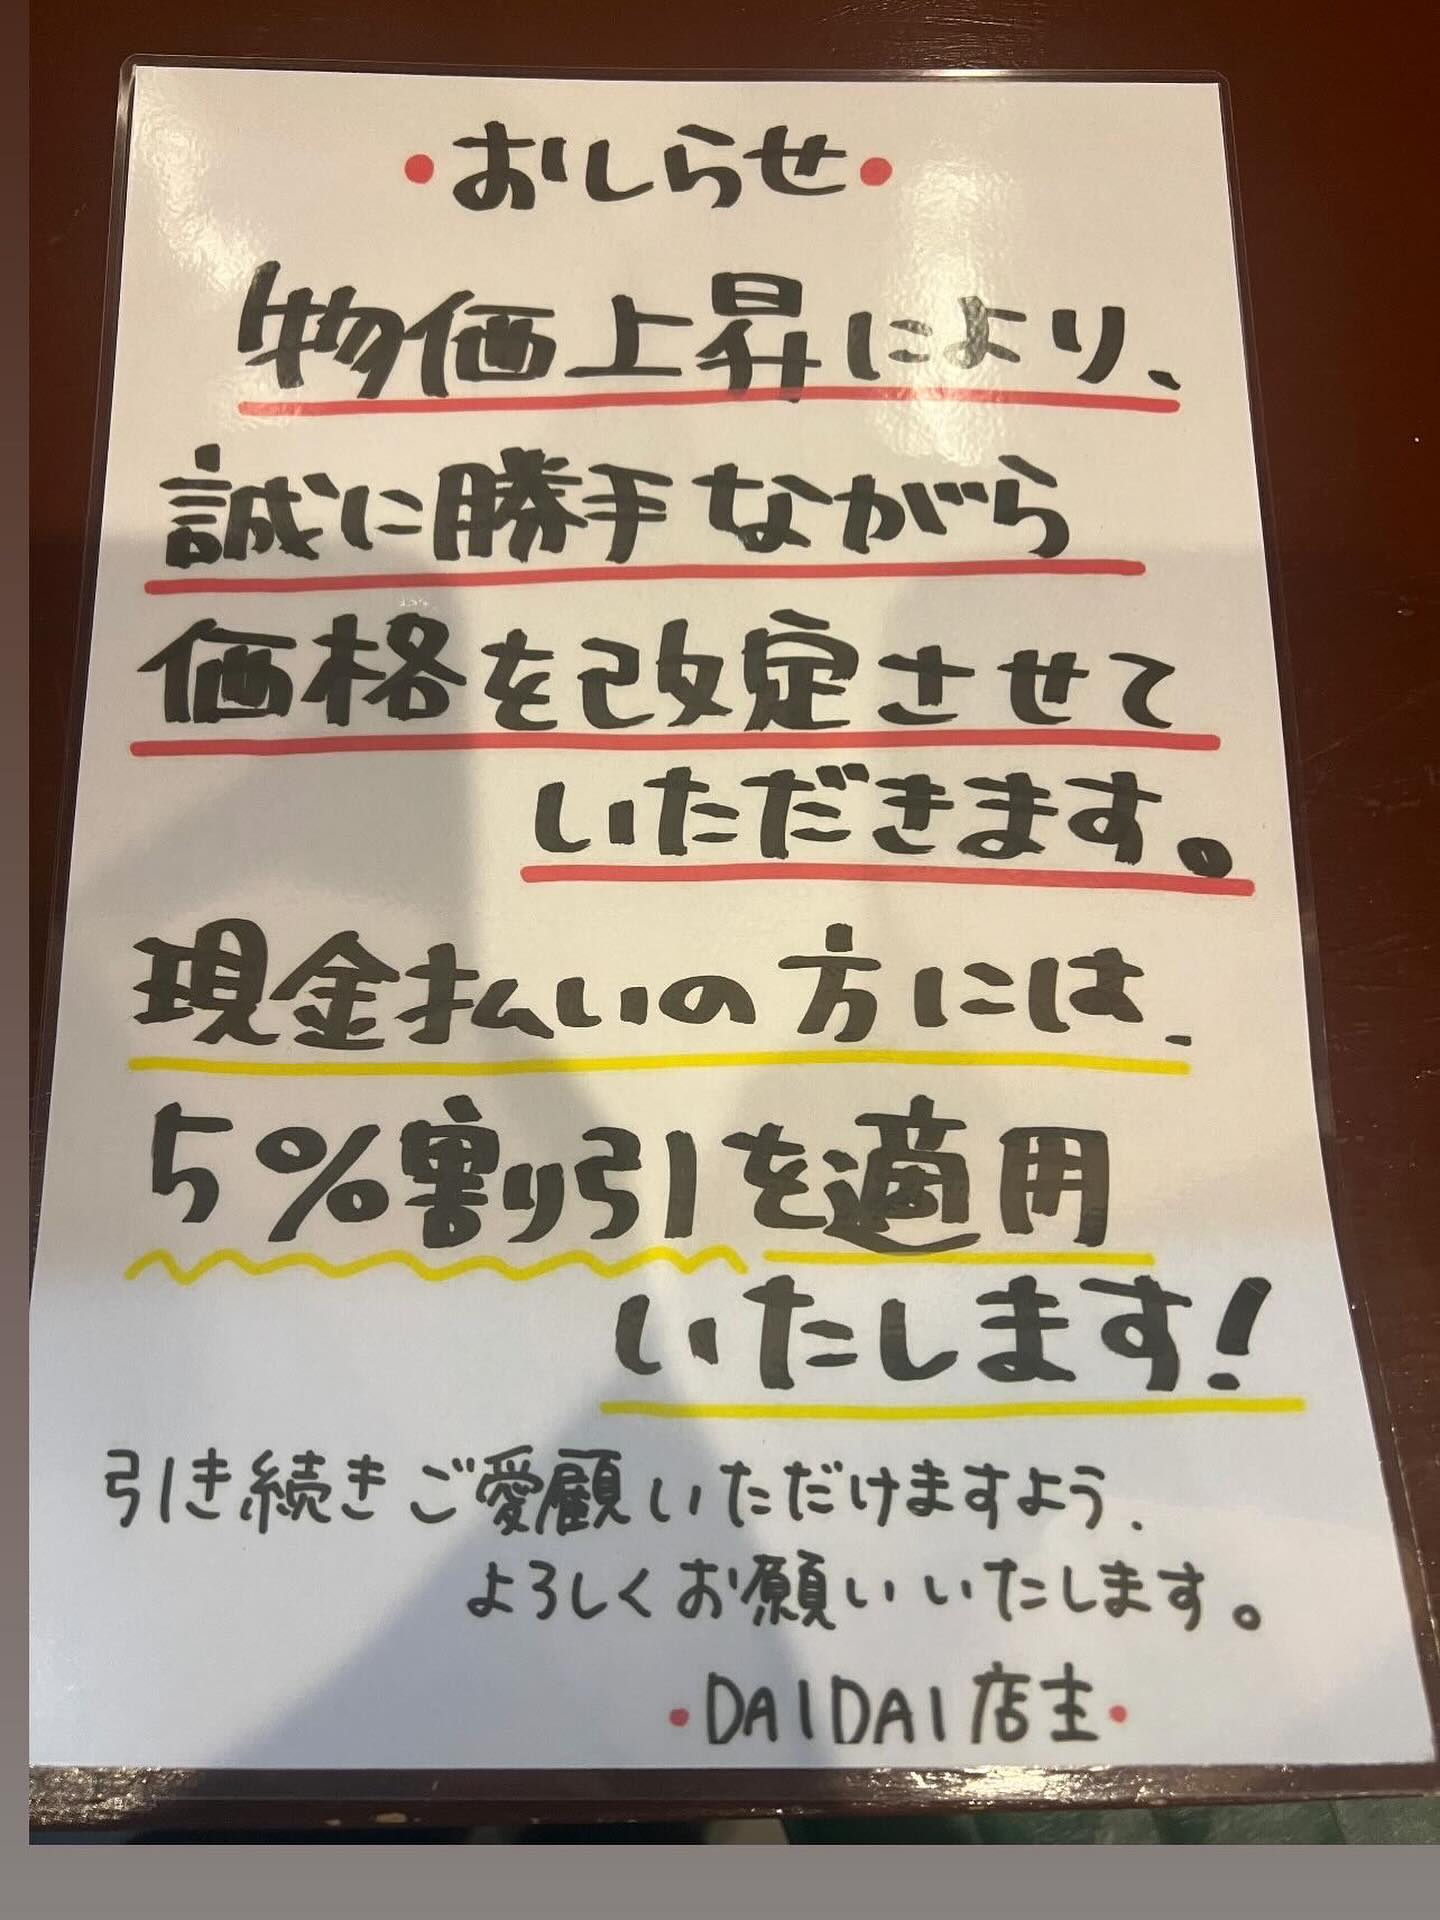 ・おしらせ・
物価上昇により、
誠に勝手ながら
価格を改定させて
いただきます。
現金払いの方には、
5%割り引を適用
いたします!
引き続きご愛顧いただけますよう、
よろしくお願いいたします。
・DAIDAI店主・